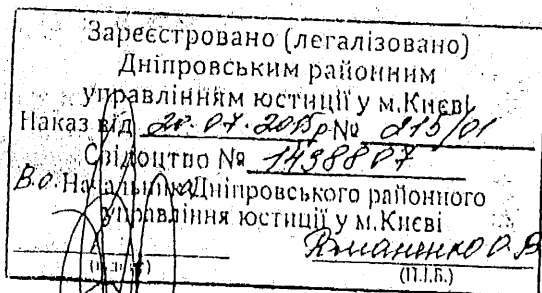 Зареєстровано (легалізовано)
Дніпровським районним
управлінням юстиції у м.Києві
Наказ від 20.07.2015р № 215/01
Свідоцтво № 1438807
В.о. Начальника Дніпровського районного
управління юстиції у м.Києві
О. В.
(підпис) (П.І.Б.)